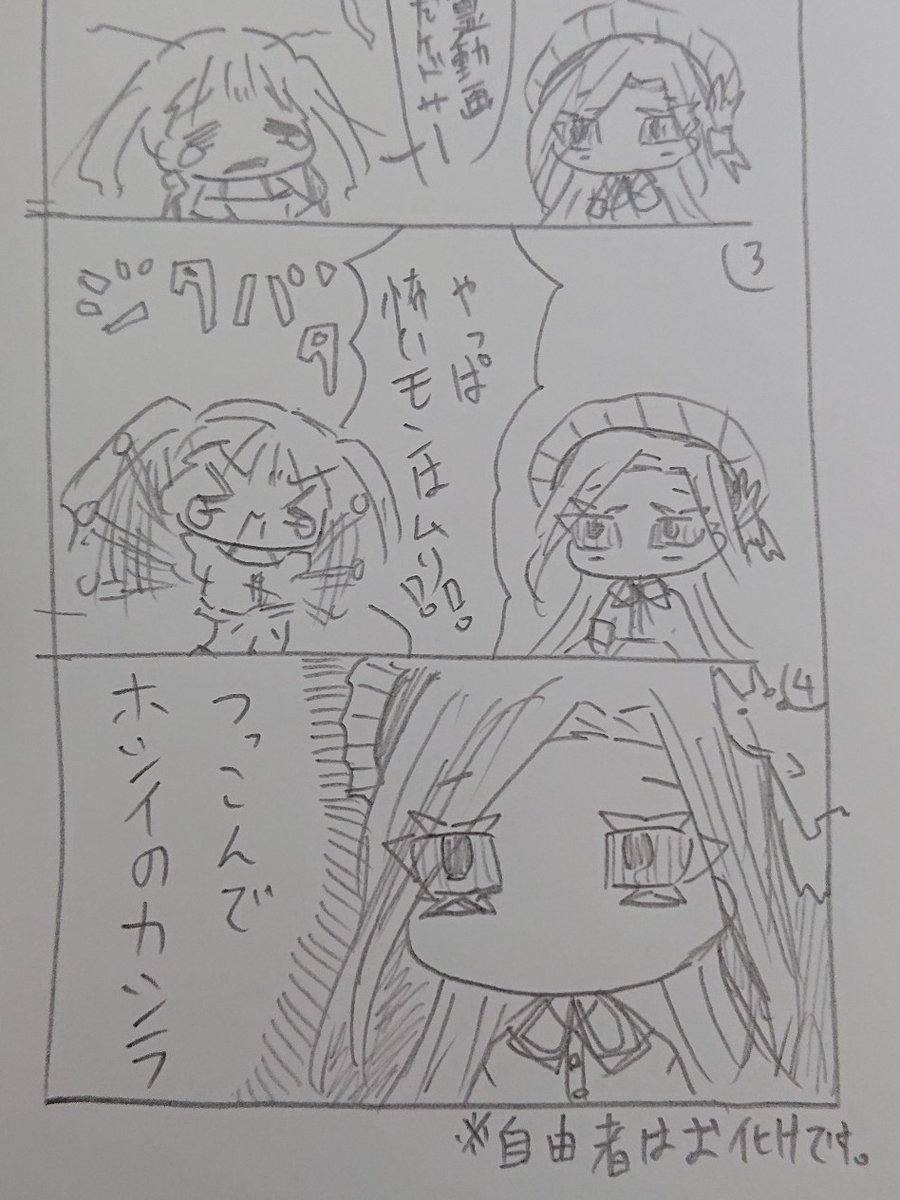 霊動画
たケドサー
3
やっぱ
怖いモンはムリ!!
ジタバ
タ
4
つっこんで
ホシイのカシラ
※自由者はお化けです。